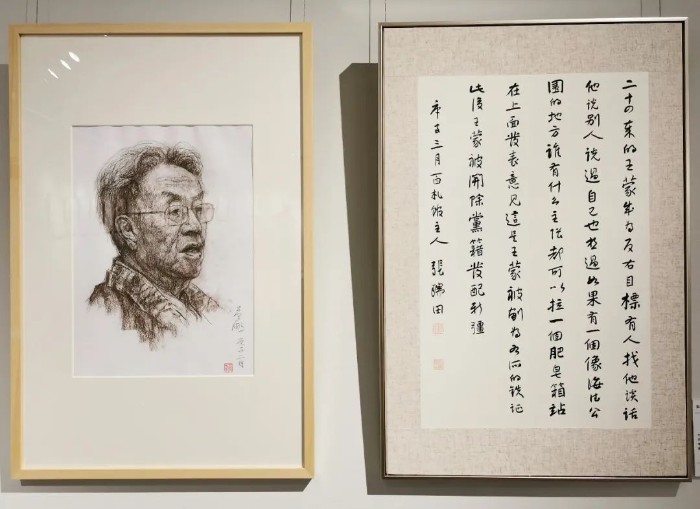 二十四岁的王蒙成为反右目標有人找他谈话
他说别人说過自己也想過如果有一個像海德公
園的地方誰有什么主張都可以拉一個肥皂箱站
在上面發表意见這是王蒙被劃為右派的铁证
此後王蒙被開除黨籍發配新疆
庚子三月百札馆主人 張瑞田